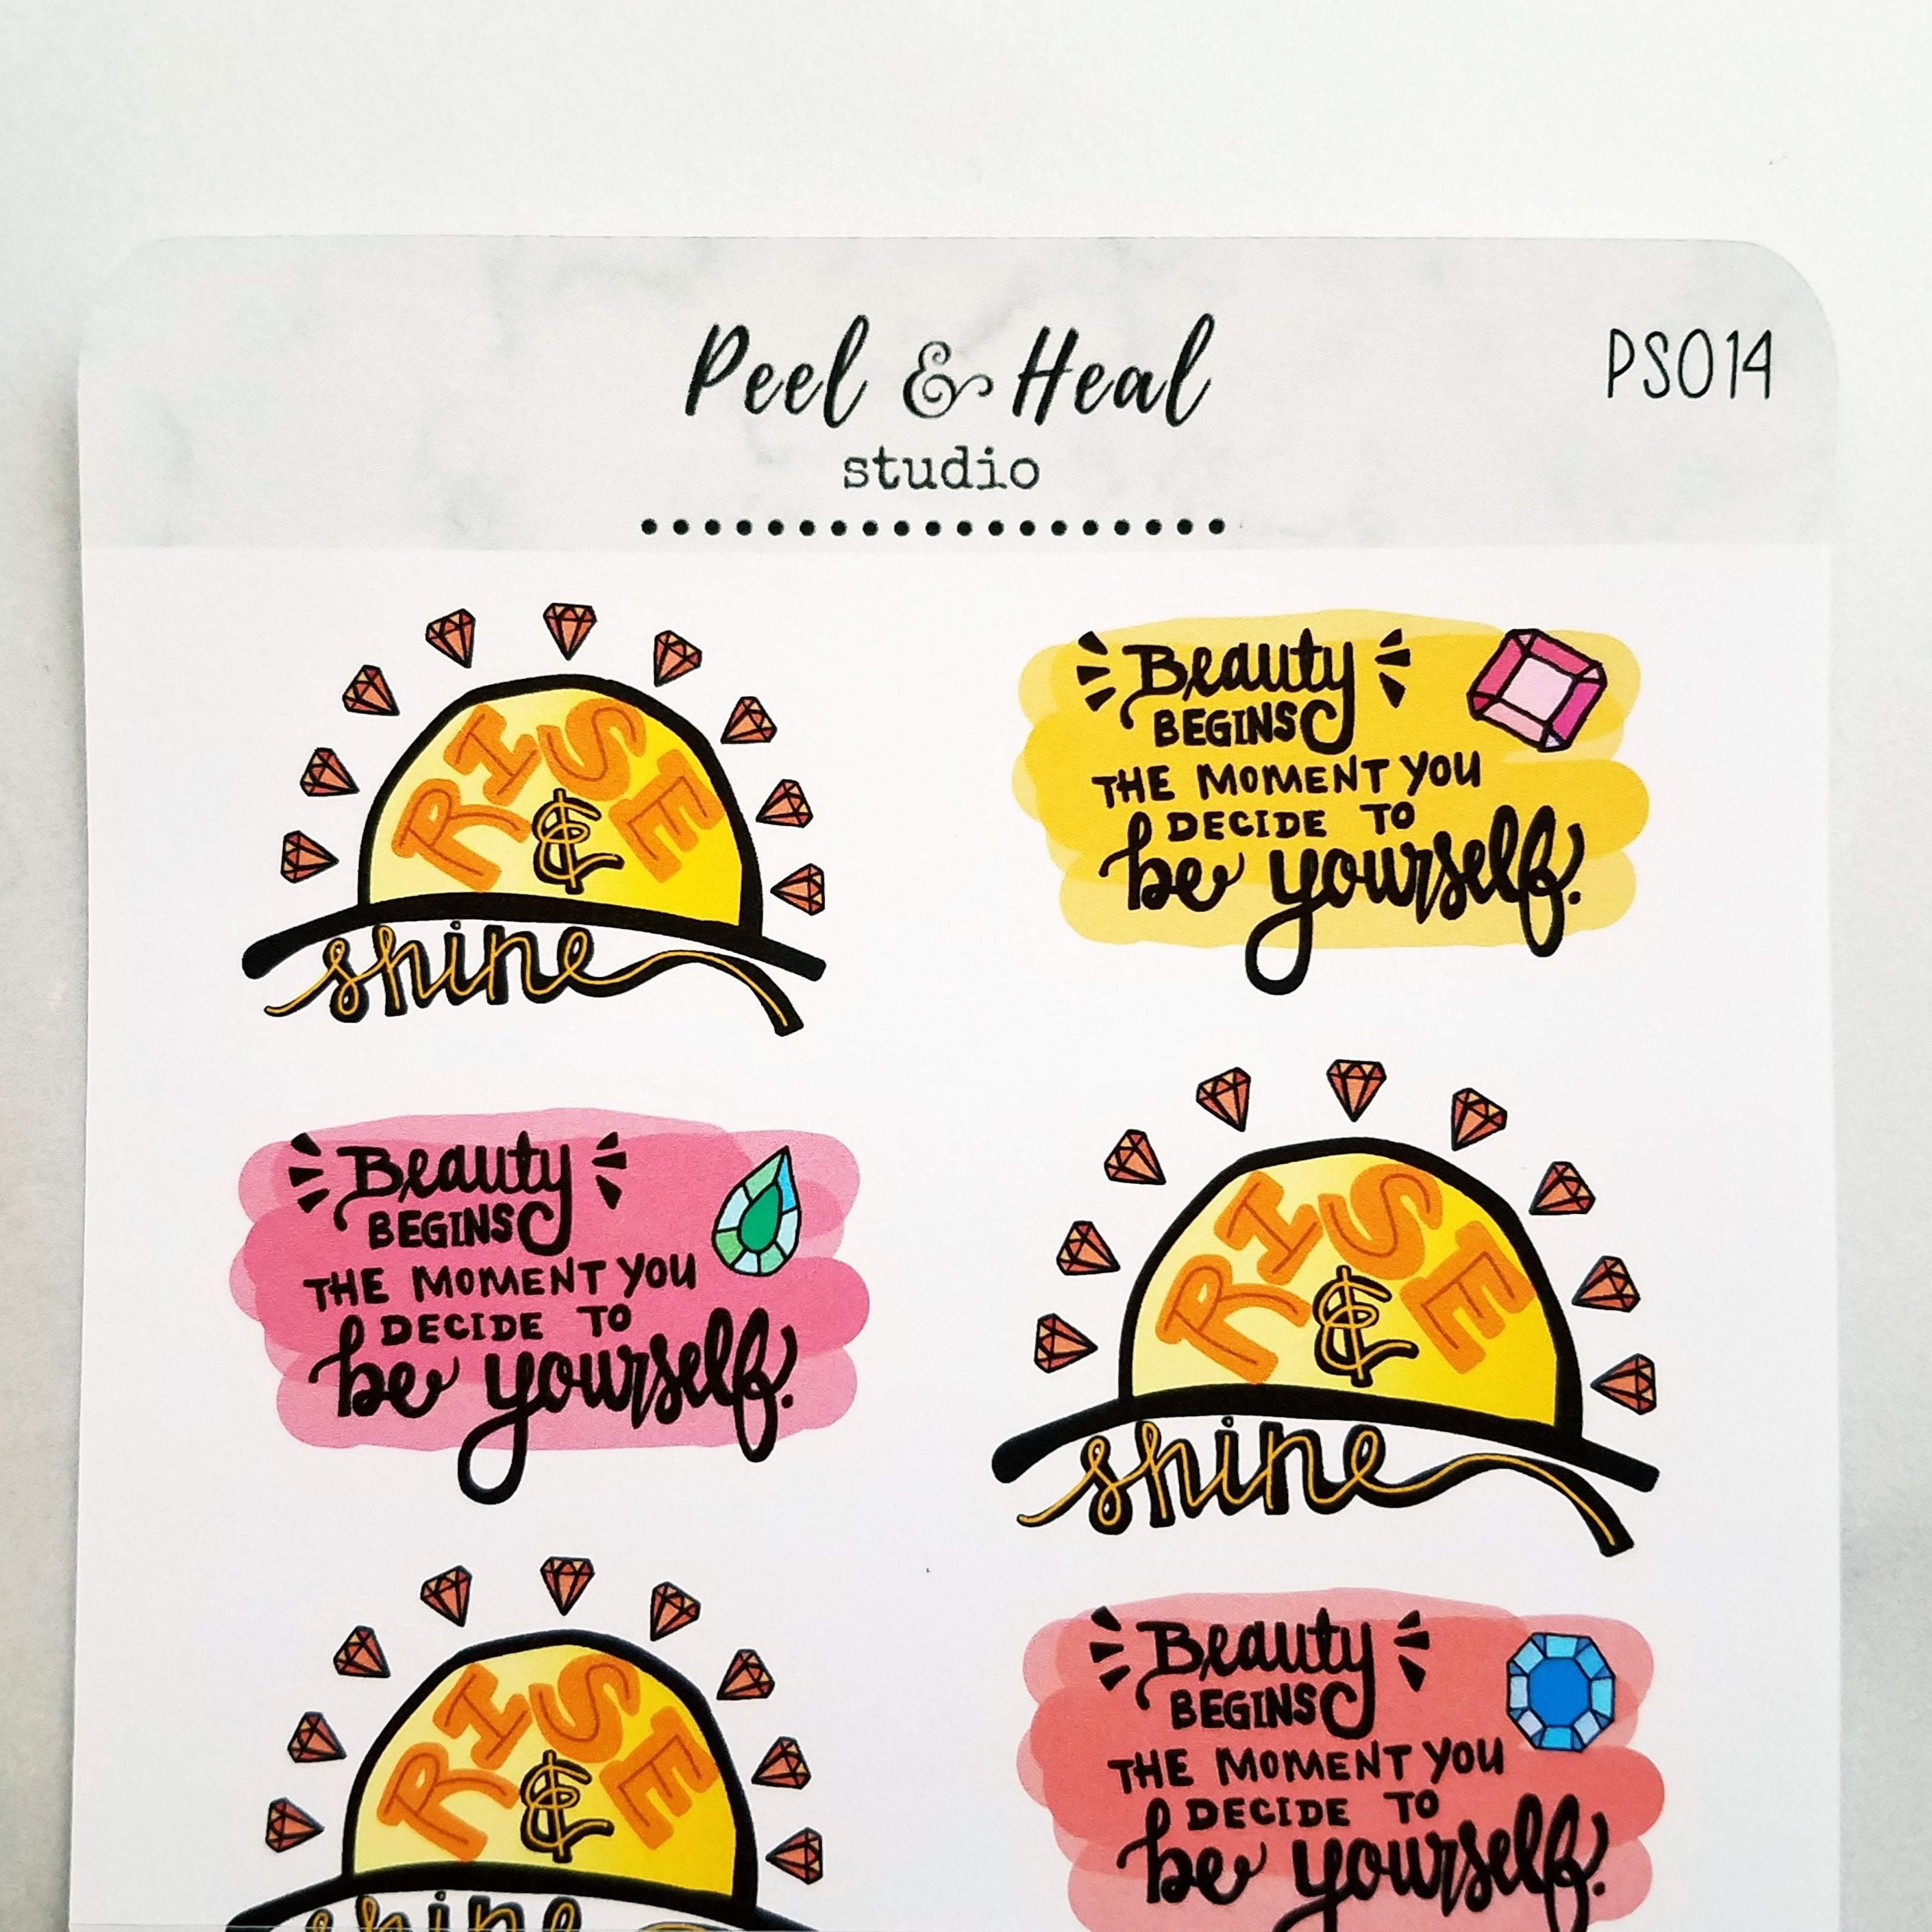 Peel & Heal
studio
PS014
RISE
&
shine
Beauty
BEGINS
THE MOMENT YOU
DECIDE TO
be yourself.
Beauty
BEGINS
THE MOMENT YOU
DECIDE TO
be yourself.
RISE
&
shine
RISE
&
shine
Beauty
BEGINS
THE MOMENT YOU
DECIDE TO
be yourself.